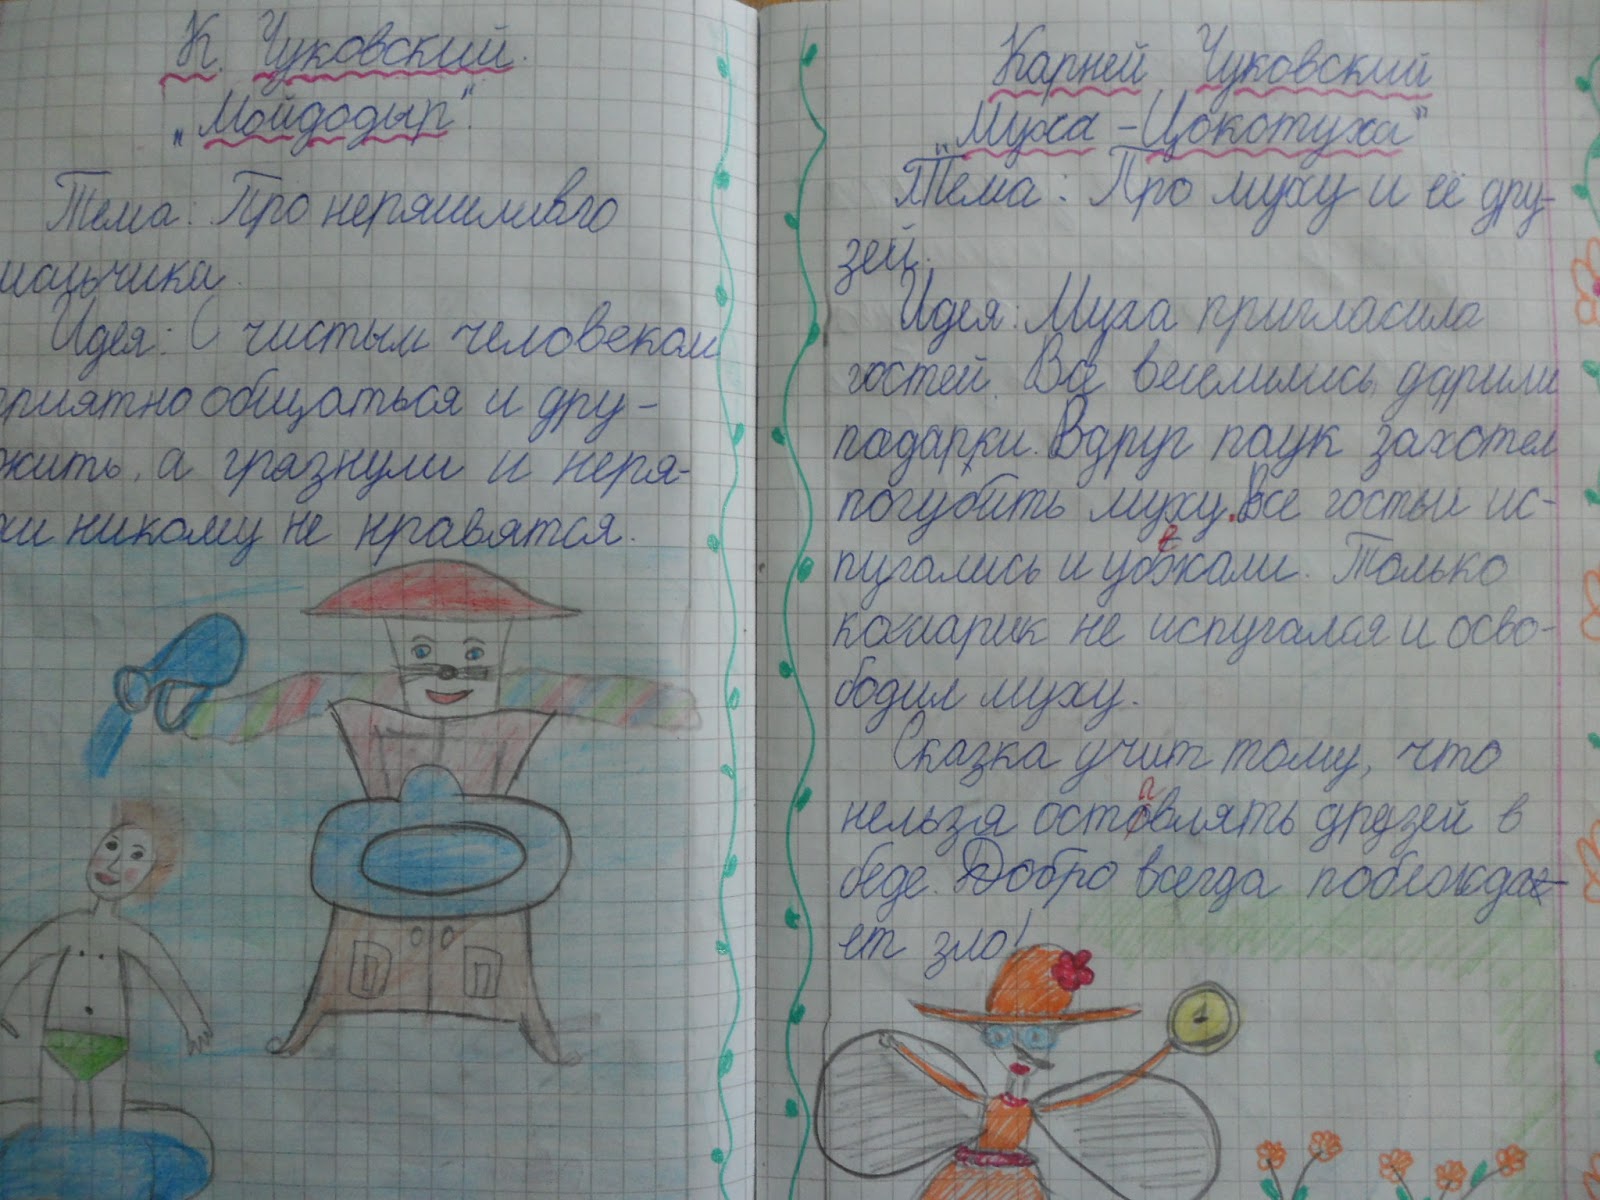 К. Чуковский.
„Мойдодыр".
Тема: Про неряшливго
мальчика.
Идея: С чистым человеком
приятно общаться и дру-
жить, а грязнули и неря-
хи никому не нравятся.
Карней Чуковский
„Муха-Цокотуха"
Тема: Про муху и её дру-
зей.
Идея: Муха пригласила
гостей. Все веселились, дарили
падарки. Вдруг паук захотел
погубить муху. Все гостьи ис-
пугались и убежали. Только
комарик не испугался и осво-
бодил муху.
Сказка учит тому, что
нельзя оставлять друзей в
беде. Добро всегда побежда-
ет зло!
1